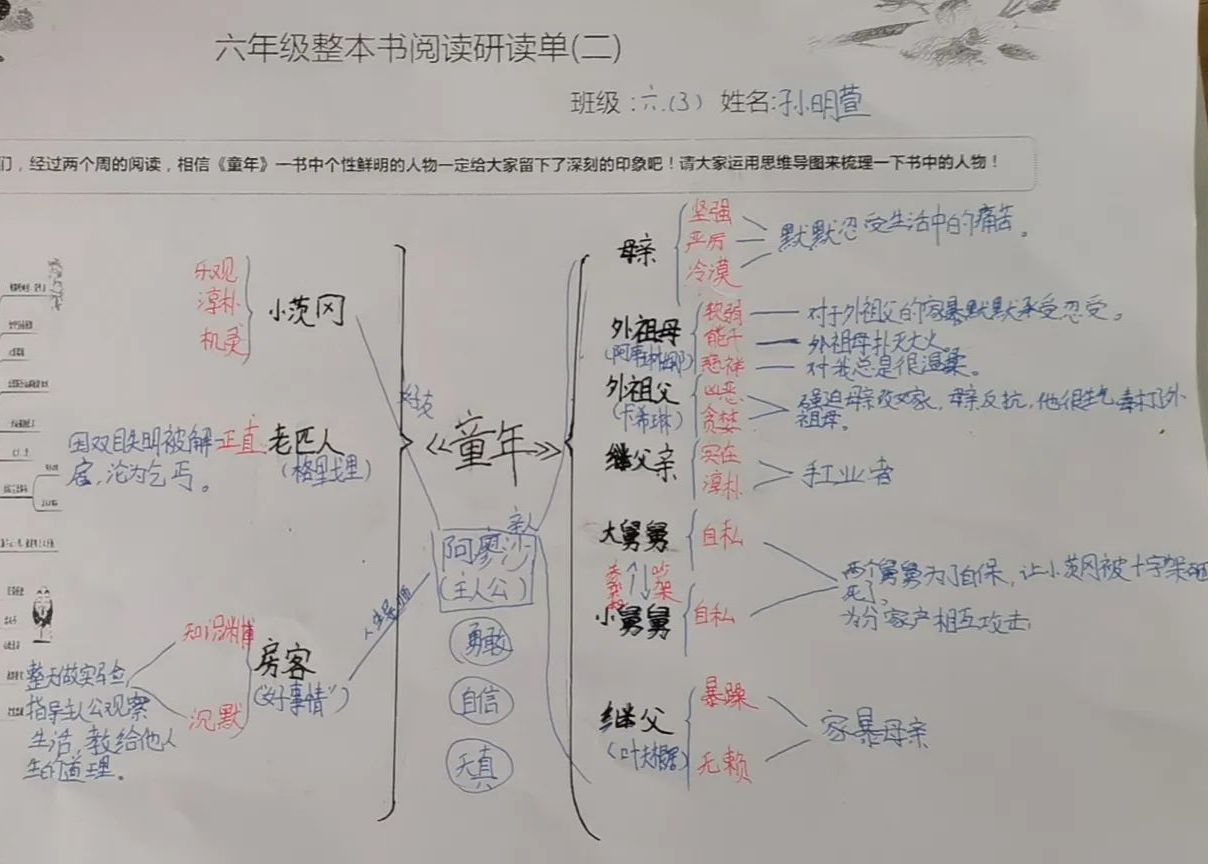 六年级整本书阅读研读单(二)
班级:六.(3) 姓名:孙明萱
们,经过两个周的阅读,相信《童年》一书中个性鲜明的人物一定给大家留下了深刻的印象吧!请大家运用思维导图来梳理一下书中的人物!
乐观
淳朴
机灵
小茨冈
好友
因双目失明被解
雇,沦为乞丐。
正直
老匠人
(格里戈里)
知识渊博
沉默
整天做实验
指导主人公观察
生活,教给他人
生的道理。
房客
("好事情")
《童年》
亲人
阿廖沙
(主人公)
勇敢
自信
天真
母亲
坚强
严厉
冷漠
默默忍受生活中的痛苦。
外祖母
软弱
能干
慈祥
对于外祖父的家暴默默承受忍受。
外祖母扑灭大火。
对我总是很温柔。
外祖父
(卡希琳)
凶恶
贪婪
强迫母亲改嫁,母亲反抗,他很生气毒打外
祖母。
继父亲
实在
淳朴
手工业者
大舅舅
自私
吵架
小舅舅
自私
两个舅舅为了自保,让小茨冈被十字架砸
死了。
为分家产相互攻击
继父
暴躁
无赖
家暴母亲